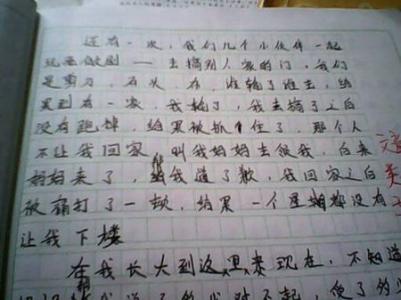 还有一次，我们几个小伙伴一起
玩恶做剧——去搞别人家的门，我们
是剪刀，石头，布，谁输了谁去，结
果到有一次，我输了，我去搞了之后
没有跑掉，结果被抓住了，那个人
不让我回家，叫我妈妈去领我，后来
妈妈来了，帮我道了歉，我回家之后
被痛打了一顿，结果一个星期都没有
让我下楼
在我长大到这里来现在，不知道